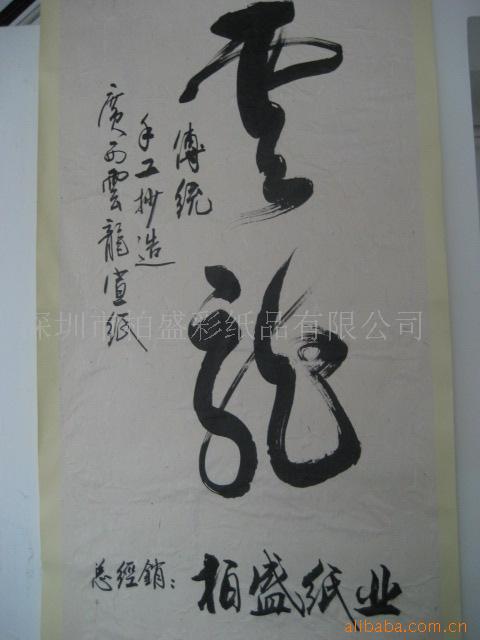 雲龍
傳統
手工抄造
廣西雲龍宣纸
总經銷：柏盛纸业
深圳市柏盛彩纸品有限公司
alibaba.com.cn